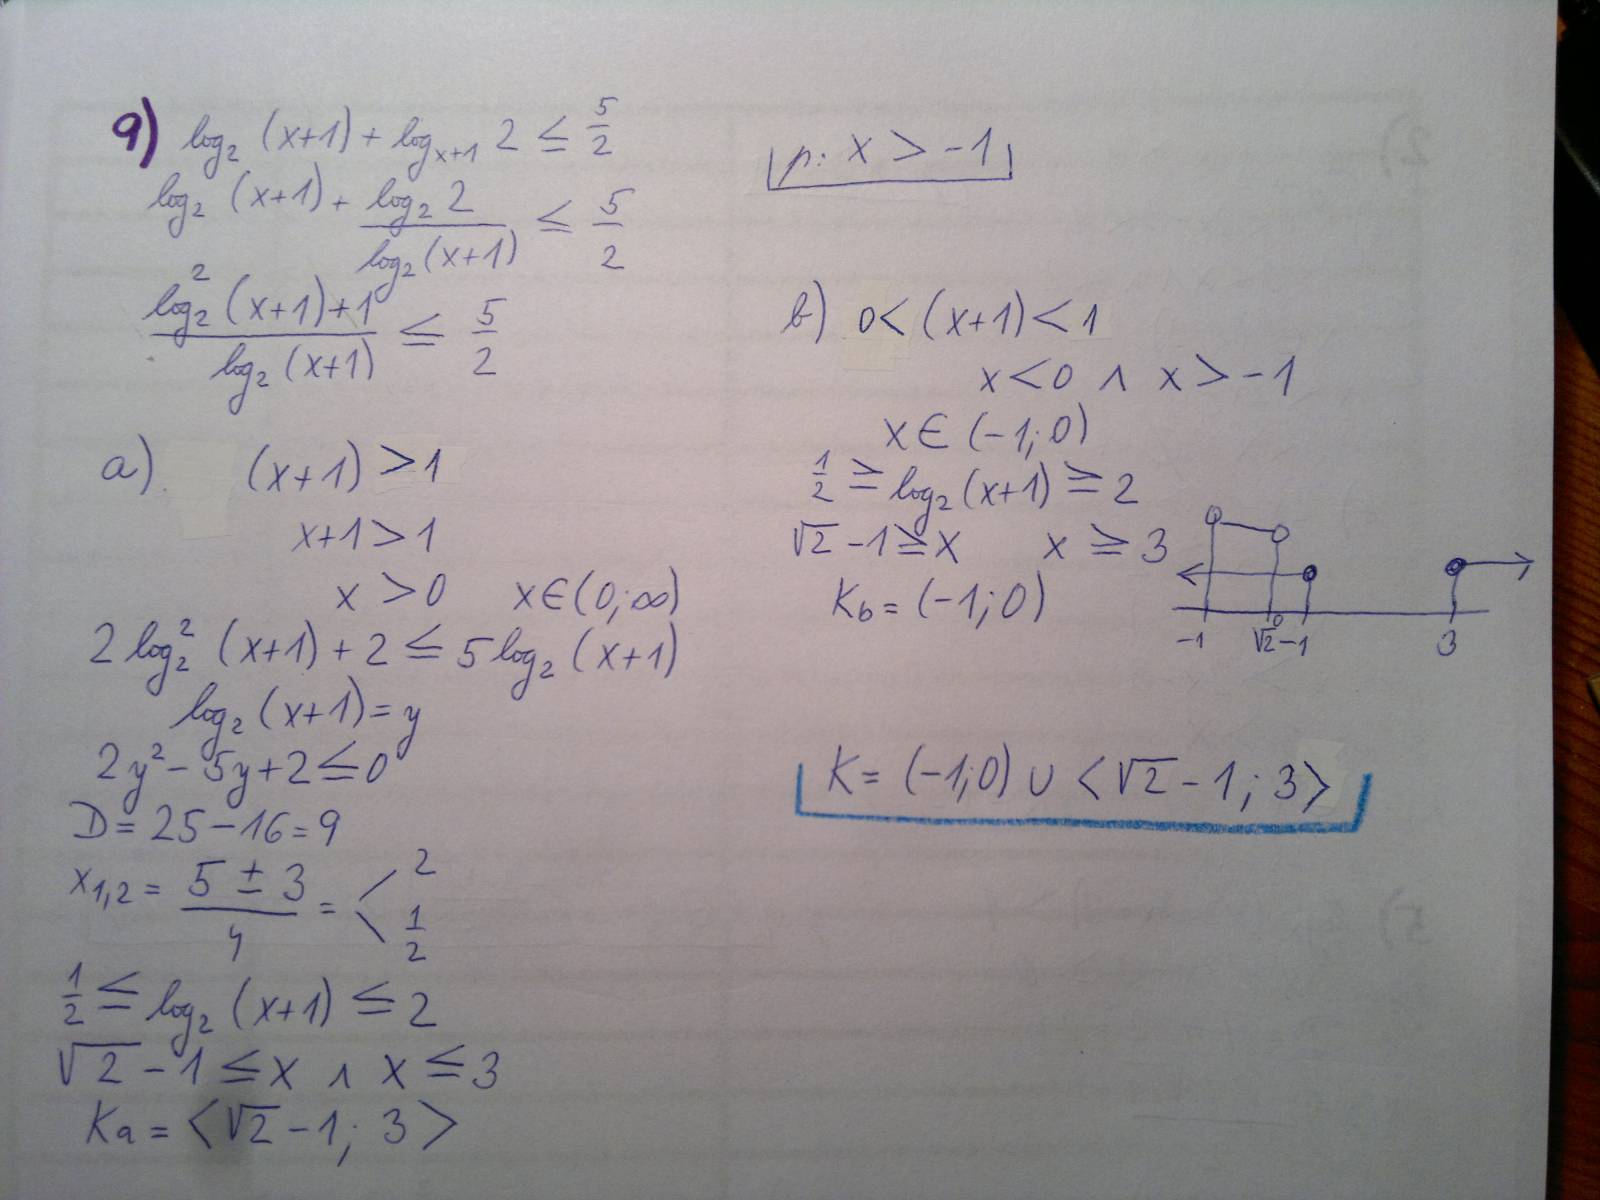 9) log₂ (x+1) + logₓ₊₁ 2 ≤ 5/2
p: x > -1
log₂ (x+1) + log₂ 2 / log₂ (x+1) ≤ 5/2
log₂² (x+1) + 1 / log₂ (x+1) ≤ 5/2
a) (x+1) > 1
x+1 > 1
x > 0 x ∈ (0; ∞)
2 log₂² (x+1) + 2 ≤ 5 log₂ (x+1)
log₂ (x+1) = y
2y² - 5y + 2 ≤ 0
D = 25 - 16 = 9
x₁,₂ = (5 ± 3) / 4 = < 2
1/2
1/2 ≤ log₂ (x+1) ≤ 2
√2 - 1 ≤ x ∧ x ≤ 3
Ka = <√2 - 1; 3>
b) 0 < (x+1) < 1
x < 0 ∧ x > -1
x ∈ (-1; 0)
1/2 ≥ log₂ (x+1) ≥ 2
√2 - 1 ≥ x x ≥ 3
Kb = (-1; 0)
-1 0 √2 -1 3
K = (-1; 0) ∪ <√2 - 1; 3>
2)
5)